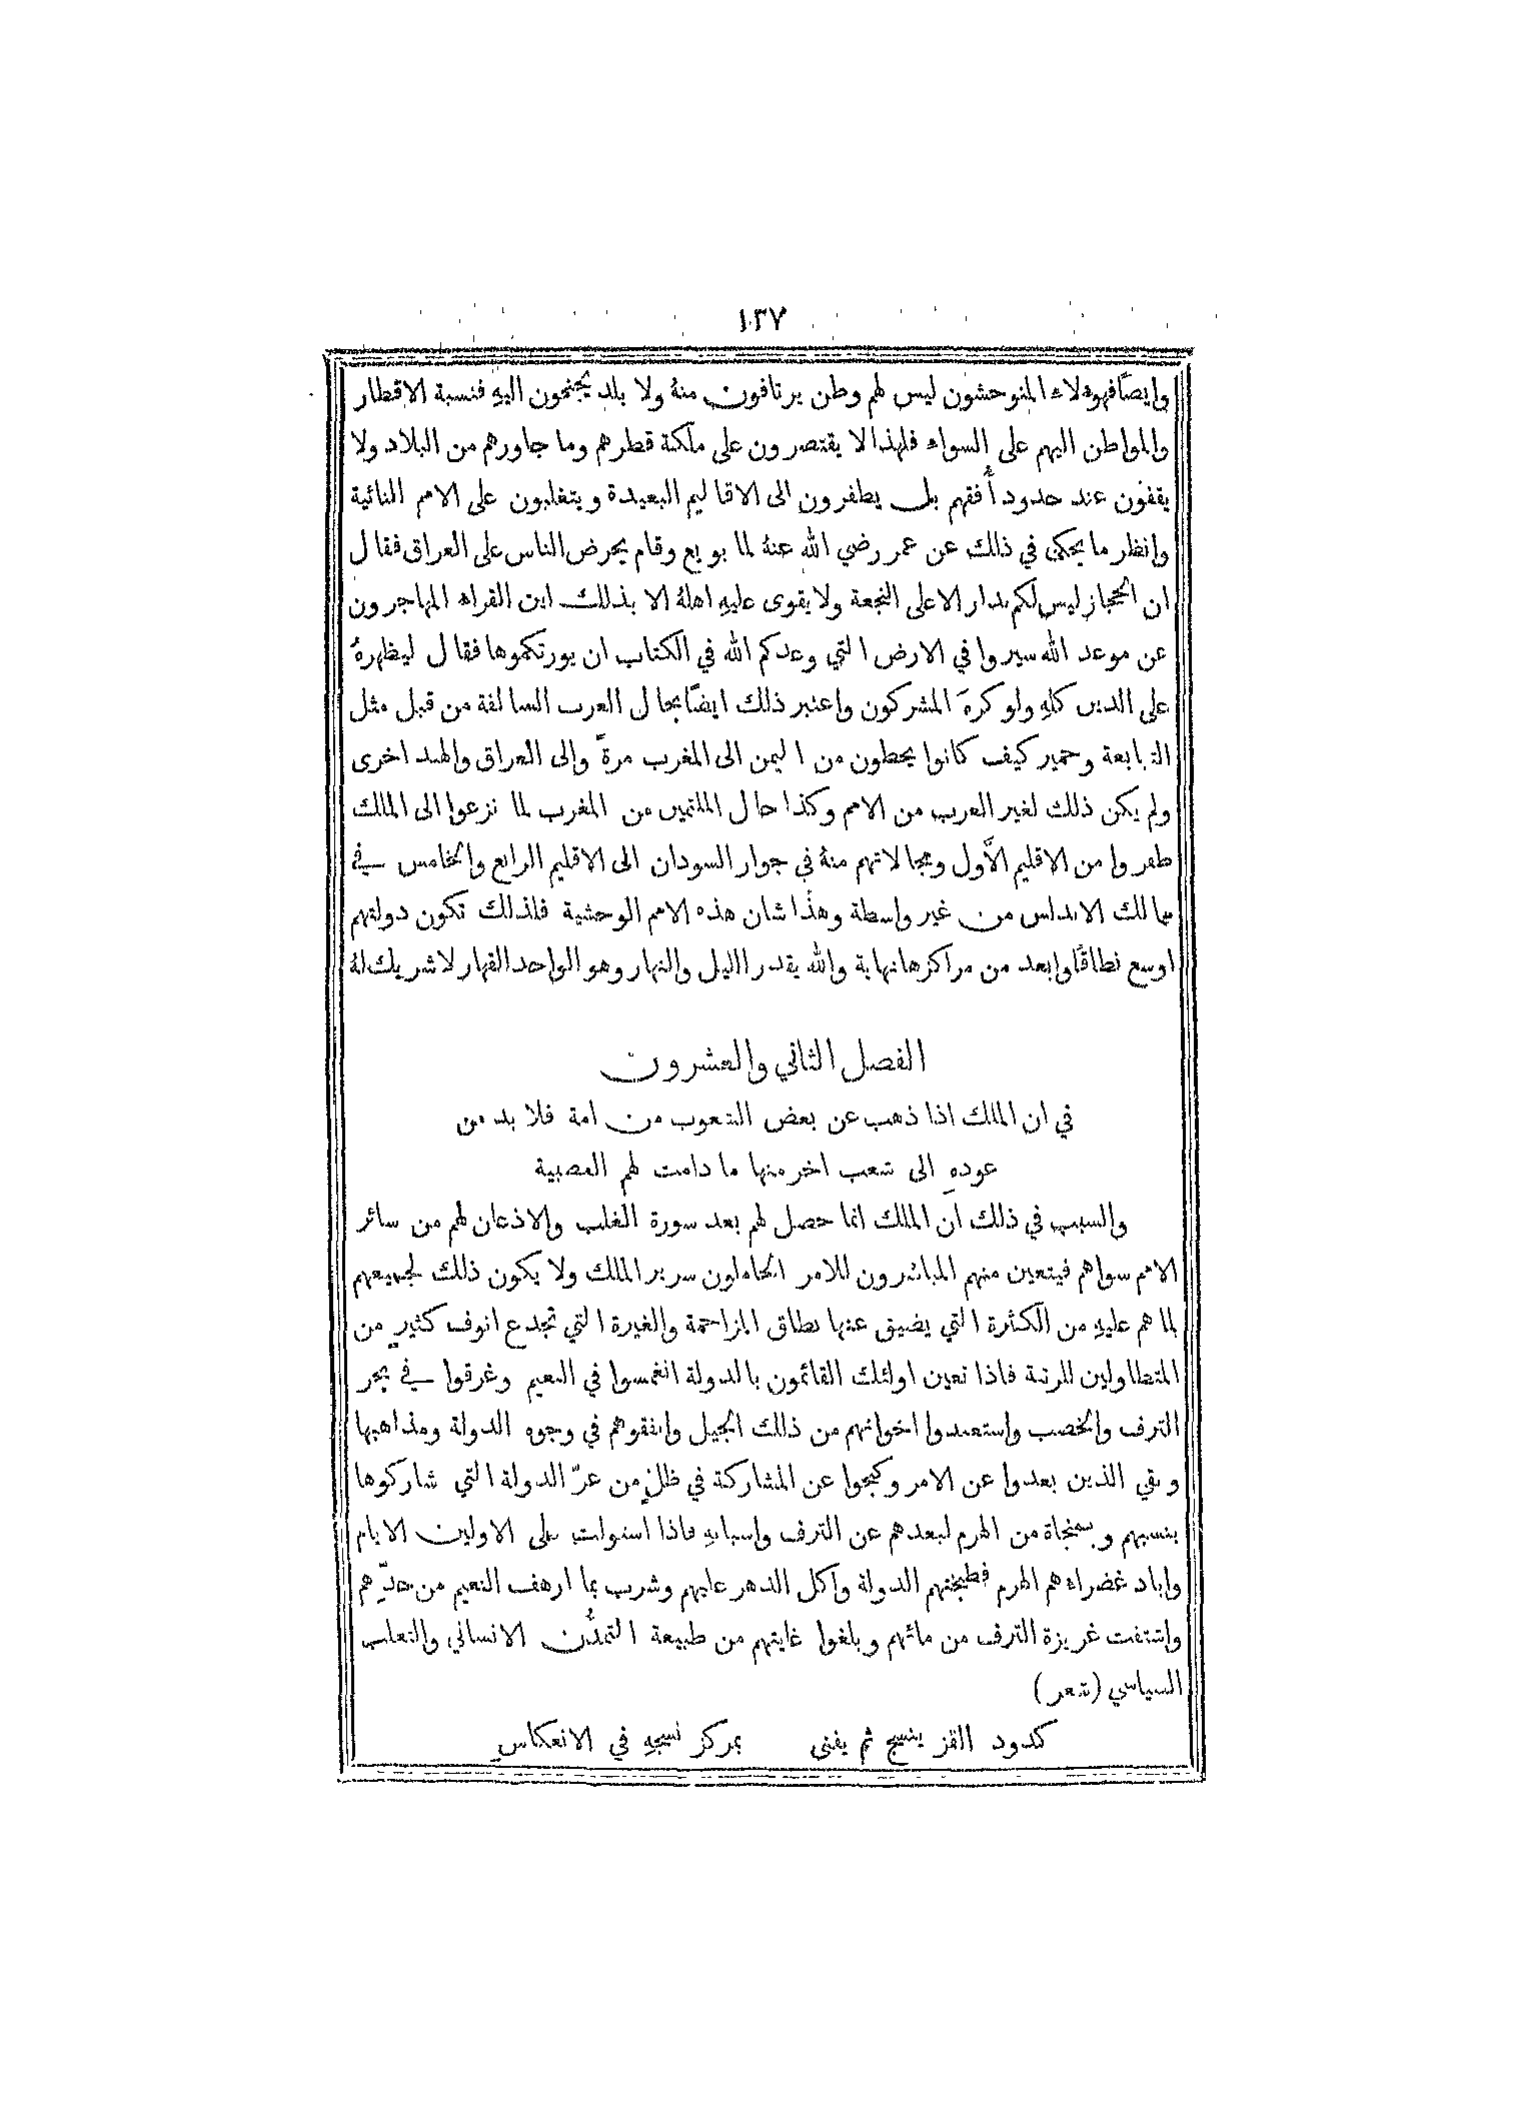 ١٣٧
وايضًا فهولاء المتوحشون ليس لهم وطن يرتافون منهُ ولا بلد يجنحون اليهِ فنسبة الاقطار
والمواطن اليهم على السواء فلهذا لا يقتصرون على ملكة قطرهم وما جاورهم من البلاد ولا
يقفون عند حدود أُفقهم بل يظفرون الى الاقاليم البعيدة ويتغلبون على الامم النائية
وانظر ما يحكى في ذلك عن عمر رضي الله عنهُ لما بويع وقام يحرض الناس على العراق فقال
ان الحجاز ليس لكم بدار الا على النجعة ولا يقوى عليهِ اهلهُ الا بذلك اين القراء المهاجرون
عن موعد الله سيروا في الارض التي وعدكم الله في الكتاب ان يورثكموها فقال ليظهرهُ
على الدين كلهِ ولو كرهَ المشركون واعتبر ذلك ايضًا بحال العرب السالفة من قبل مثل
التبابعة وحمير كيف كانوا يخطون من اليمن الى المغرب مرةً والى العراق والهند اخرى
ولم يكن ذلك لغير العرب من الامم وكذا حال الملثمين من المغرب لما نزعوا الى الملك
طفروا من الاقليم الأَّول ومجالاتهم منهُ في جوار السودان الى الاقليم الرابع والخامس في
ممالك الاندلس من غير واسطة وهذا شان هذه الامم الوحشية فلذلك تكون دولتهم
اوسع نطاقًا وابعد من مراكزها نهاية والله يقدر الليل والنهار وهو الواحد القهار لا شريك لهُ
الفصل الثاني والعشرون
في ان الملك اذا ذهب عن بعض الشعوب من امة فلا بد من
عودهِ الى شعب اخر منها ما دامت لهم العصبية
والسبب في ذلك ان الملك انما حصل لهم بعد سورة الغلب والاذعان لهم من سائر
الامم سواهم فيتعين منهم المباشرون للامر الحاملون سرير الملك ولا يكون ذلك لجميعهم
لما هم عليهِ من الكثرة التي يضيق عنها نطاق المزاحمة والغيرة التي تجدع انوف كثيرٍ من
المتطاولين للرتبة فاذا تعين اولئك القائمون بالدولة انغمسوا في النعيم وغرقوا في بحر
الترف والخصب واستعبدوا اخوانهم من ذلك الجيل وانفقوهم في وجوه الدولة ومذاهبها
وبقي الذين بعدوا عن الامر وكبحوا عن المشاركة في ظلٍ من عزّ الدولة التي شاركوها
بنسبهم وبمنجاة من الهرم لبعدهم عن الترف واسبابهِ فاذا استولت على الاولين الايام
واباد غضراءهم الهرم فطبختهم الدولة واكل الدهر عليهم وشرب بما ارهف النعيم من حدّهم
واشتفت غريزة الترف من مائهم وبلغوا غايتهم من طبيعة التمدُّن الانساني والتغلب
السياسي (شعر)
كدود القز ينسج ثم يفنى بمركز نسجهِ في الانعكاسِ